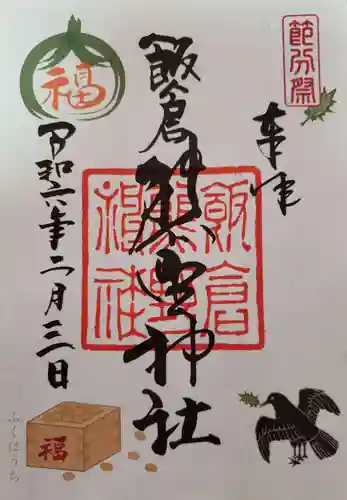 節分祭
奉拝
飯倉
熊野神社
飯倉熊野神社
令和六年二月三日
福
福
ふくはうち